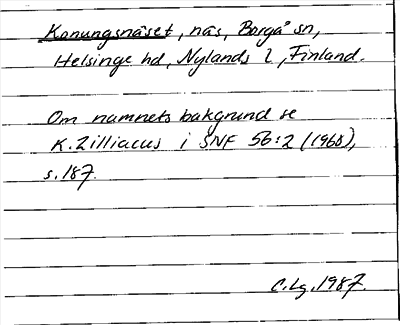 Konungsnäset, näs, Borgå sn,
Helsinge hd, Nylands l, Finland.
Om namnets bakgrund se
K. Zilliacus i SNF 56:2 (1968),
s. 187.
C.Lg. 1987.